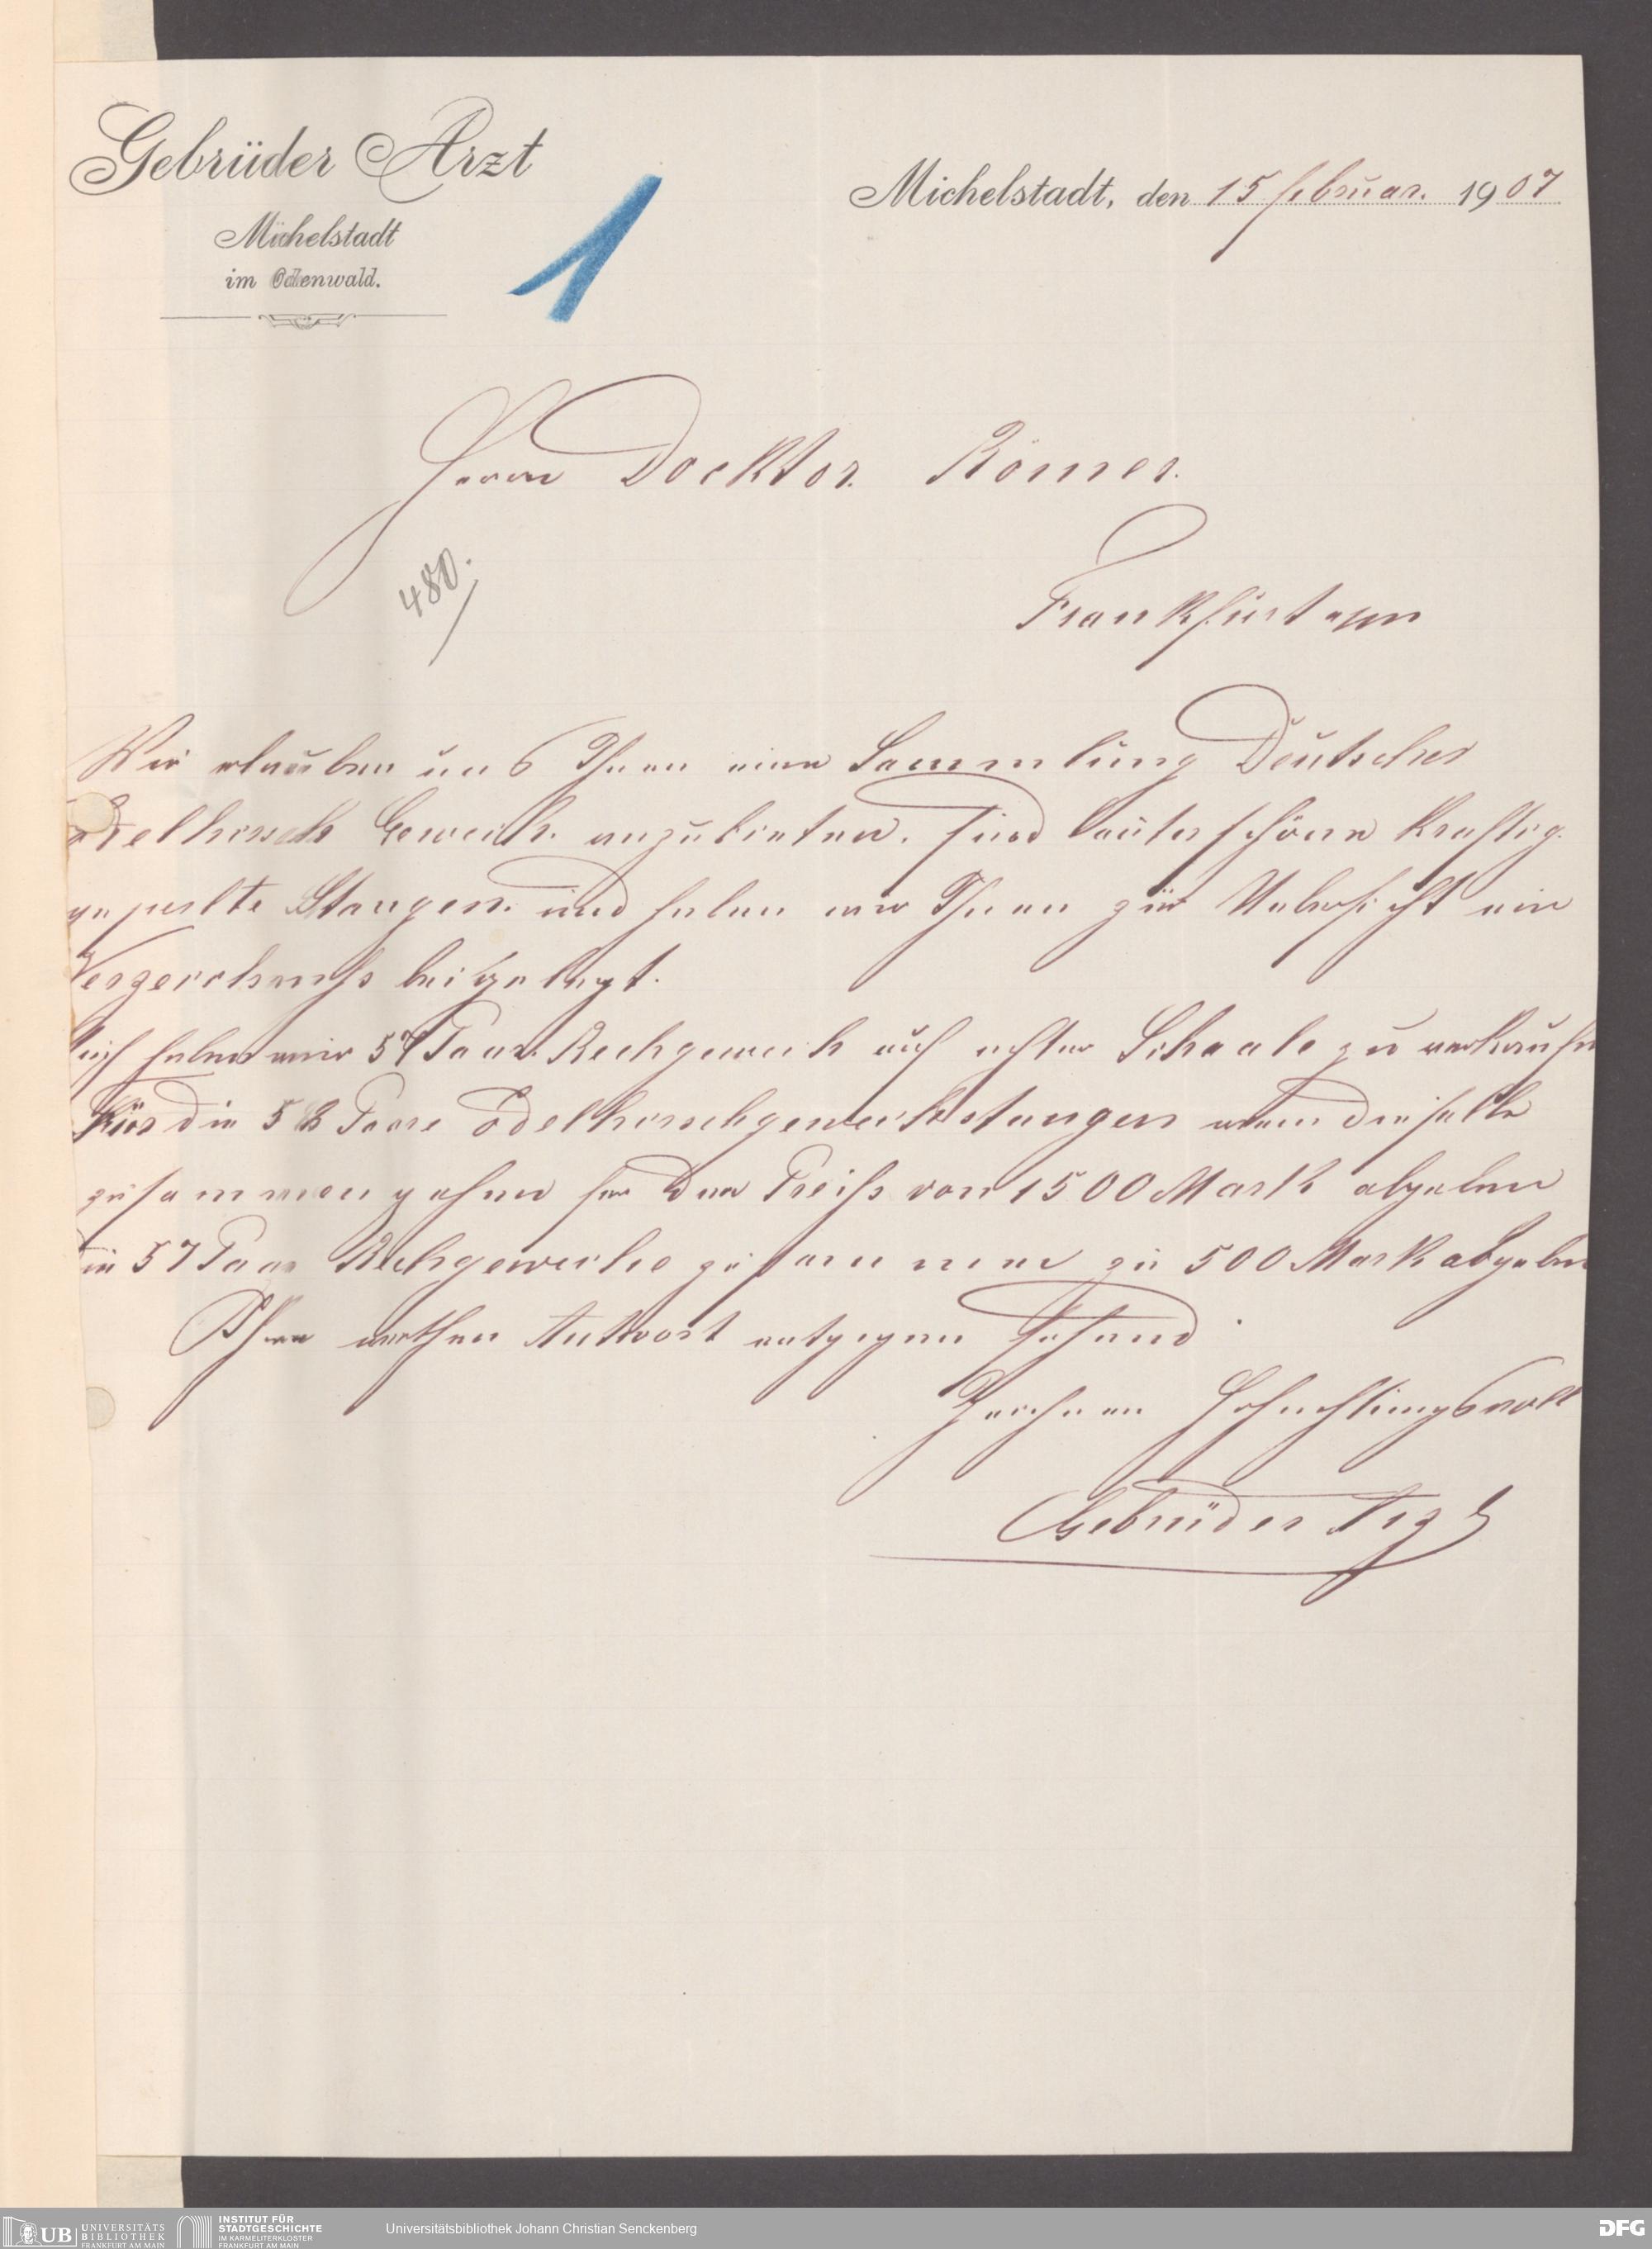 Gebrüder Arzt
Michelstadt
im Odenwald.
1
Michelstadt, den 15 februar. 1907
Herrn Docktor. Römer.
480.
Frankfurt a/m
Wir erlauben uns Ihnen eine Sammlung Deutscher
Edelhirsch Geweih. anzubieten. sind lauter schöne kraftig.
geperlte Stangen. und haben wir Ihnen zur Uebersicht ein
Verzeichniß beigelegt.
Auch haben wir 57 Paar Rechgeweih auf echter Schaale zu verkaufen
Für die 58 Paare Edelhirschgeweihstangen wenn dieselbe
zusammengehen für den Preiß von 1500 Mark abgeben
die 57 Paar Rehgeweihe zusammen zu 500 Mark abgeben
Ihre werthen Antwort entgegen sehend
Zeichnen Hochachtungsvoll
Gebrüder Arzt
UB UNIVERSITÄTS
BIBLIOTHEK
FRANKFURT AM MAIN
INSTITUT FÜR
STADTGESCHICHTE
IM KARMELITERKLOSTER
FRANKFURT AM MAIN
Universitätsbibliothek Johann Christian Senckenberg
DFG